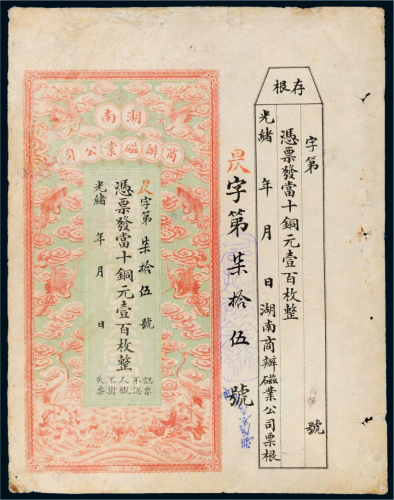 存根
字第 號
憑票發當十銅元壹百枚整
光緒 年 月 日 湖南商辦磁業公司票根
昃字第柒拾伍號
湖南
商辦磁業公司
昃字第柒拾伍號
憑票發當十銅元壹百枚整
光緒 年 月 日
認票不認人概不掛失票